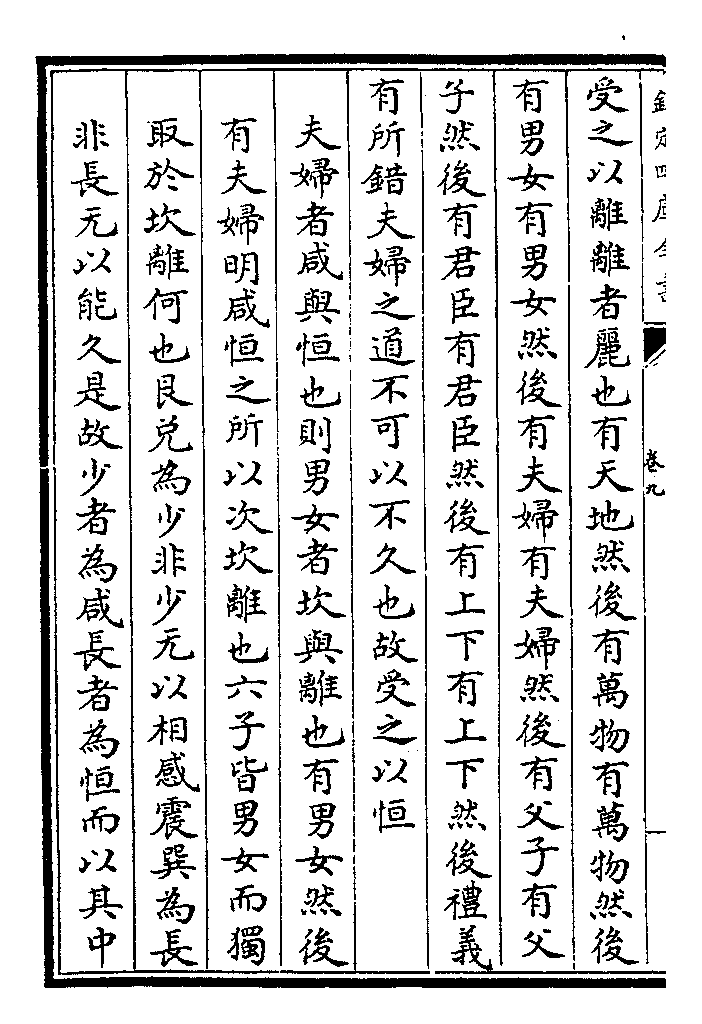 欽定四庫全書
卷九
受之以離離者麗也有天地然後有萬物有萬物然後
有男女有男女然後有夫婦有夫婦然後有父子有父
子然後有君臣有君臣然後有上下有上下然後禮義
有所錯夫婦之道不可以不久也故受之以恒
夫婦者咸與恒也則男女者坎與離也有男女然後
有夫婦明咸恒之所以次坎離也六子皆男女而獨
取於坎離何也艮兌為少非少无以相感震巽為長
非長无以能久是故少者為咸長者為恒而以其中